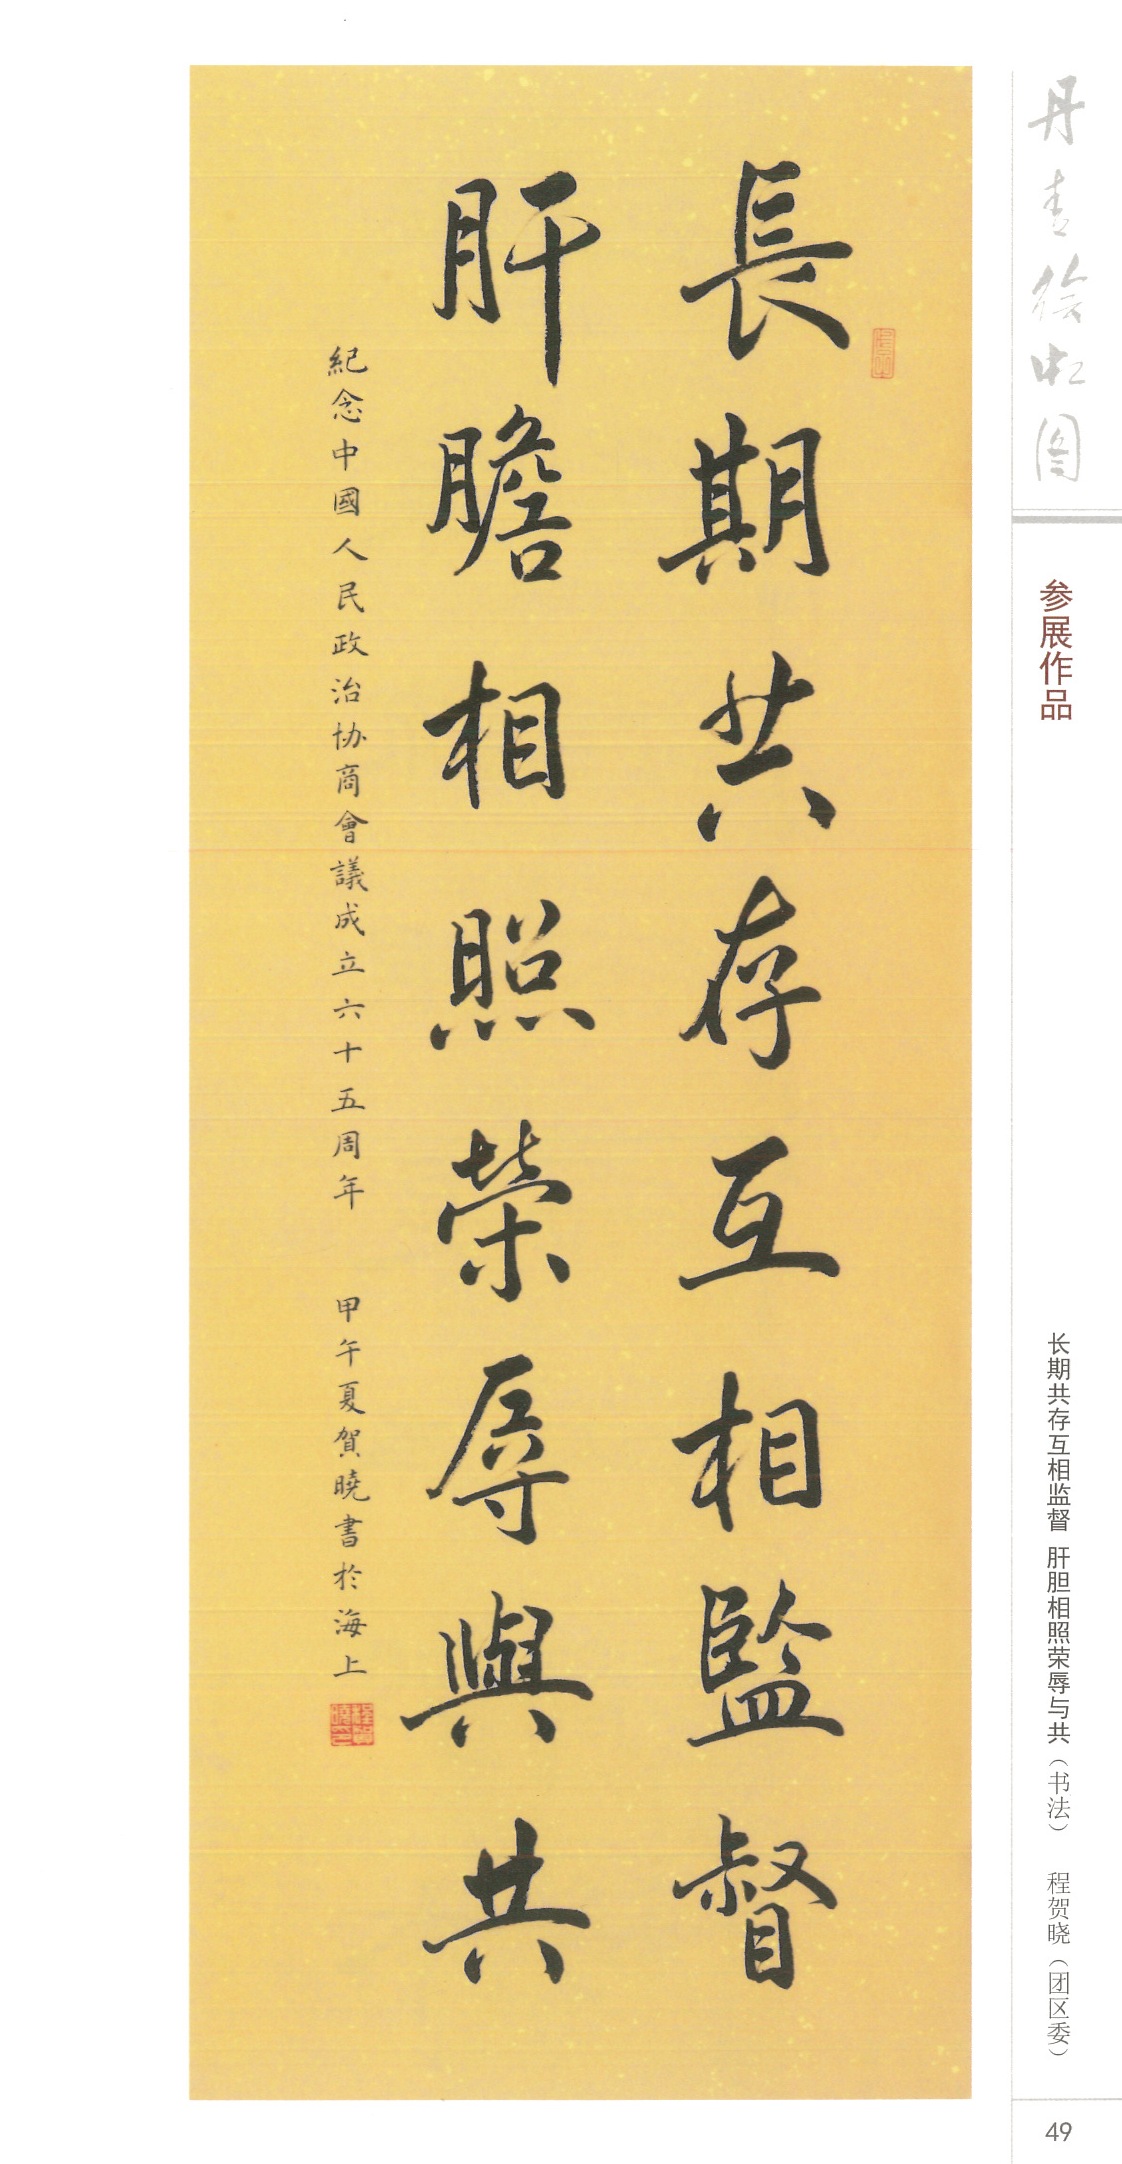 長期共存互相監督
肝膽相照榮辱與共
紀念中國人民政治协商會議成立六十五周年 甲午夏賀曉書於海上
丹青绘虹图
参展作品
长期共存互相监督 肝胆相照荣辱与共（书法） 程贺晓（团区委）
49